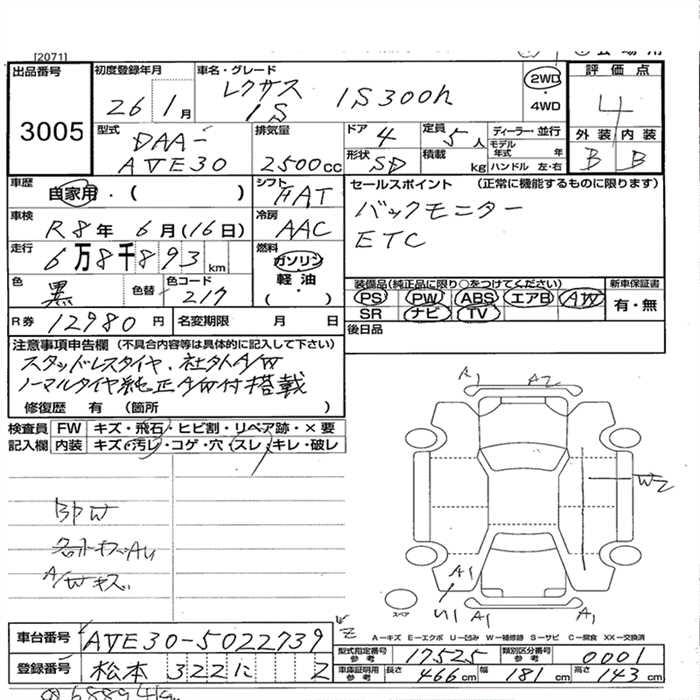 [2071]
出品番号
3005
初度登録年月
26 1月
車名・グレード
レクサス
IS IS300h
2WD
・
4WD
評価点
4
外装 内装
B B
型式
DAA-
AVE30
排気量
2500cc
ドア 4
定員 5人
形状 SD
積載 kg
ディーラー・並行
モデル年式 年
ハンドル 左・右
車歴
自家用・( )
シフト
FAT
セールスポイント (正常に機能するものに限ります)
バックモニター
ETC
車検
R8年6月(16日)
冷房
AAC
走行
6万8千893km
燃料
ガソリン
・
軽油
( )
色
黒
色替
色コード
217
装備品(純正品に限り○をつけてください)
PS PW ABS エアB AW
SR ナビ TV
新車保証書
有・無
R券 12980円
名変期限 月 日
後日品
注意事項申告欄 (不具合内容等は具体的に記入して下さい)
スタッドレスタイヤ、社外A/W
ノーマルタイヤ純正A/W付搭載
修復歴 有 (箇所 )
検査員
記入欄
FW キズ・飛石・ヒビ割・リペア跡・×要
内装 キズ・汚レ・コゲ・穴・スレ・キレ・破レ
A1 A2
W2
BPW
A/Wキズ
A1
U1 A1 A1
スペア
A－キズ E－エクボ U－凹み W－補修跡 S－サビ C－腐食 XX－交換済
車台番号 AVE30-5022739
登録番号 松本 322 に 2
型式指定番号
参考
17525
類別区分番号
参考
0001
車庫証明用
参考
長さ 466cm 幅 181cm 高さ 143cm